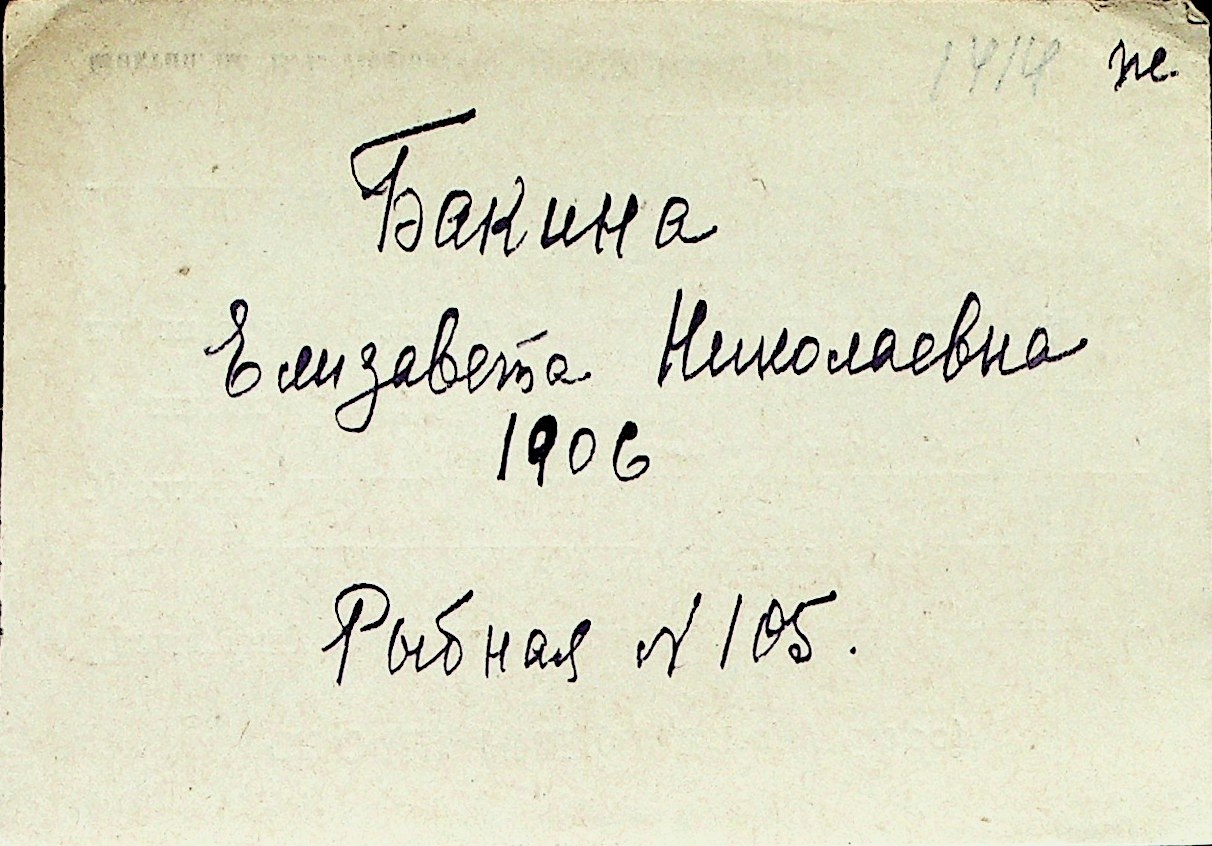 1414 ж.
Бакина
Елизавета Николаевна
1906
Рыбная N 105.